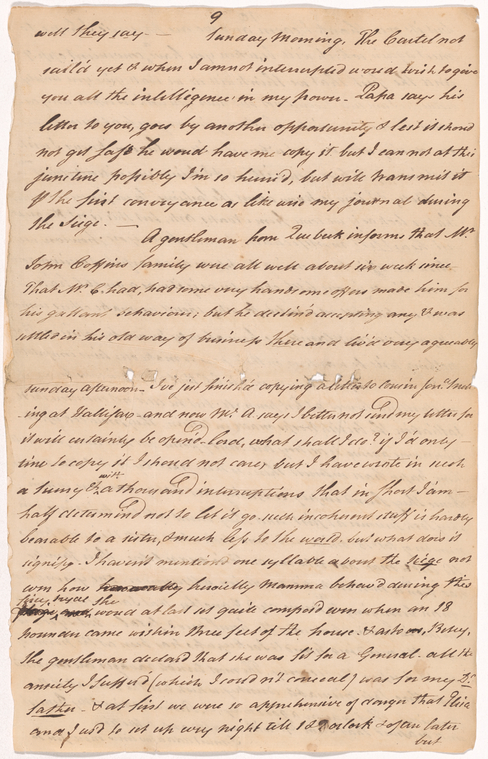 9
well they say — Sunday Morning, The Cartel not
sail'd yet & when I am not interrupted would wish to give
you all the intelligence in my power – Papa says his
letter to you, goes by another opportunity & lest it should
not get safe he would have me copy it but I can not at this
juncture possibly I'm so hurried, but will transmit it
the first conveyance as likewise my journal during
the Siege. —
A gentleman from Quebeck informs that Mr
John Coffins family were all well about six week since
That Mr C. had, had some very handsome offers made him for
his gallant behaviour, but he declin'd accepting any & was
settled in his old way of business there and liv'd very agreeably
Sunday afternoon – I've just finish'd copying a letter to cousin Jon.
ing at Hallifax – and now Mr A. says I better not send my letter for
it will certainly be open'd – Lord, what shall I do? if I'd only
time to copy it I should not care, but I have wrote in such
a hurry & with a thousand interruptions that in short I am –
half determined not to let it go. such incoherent stuff is hardly
bearable to a sister, & much less to the world. but what does it
signify. I haven't mentioned one syllable about the siege not
even how heroically Mamma behav'd during the
the would at last set quite compos'd even when an 18
pounder came within three feet of the house. & as to Betsy,
the gentleman declar'd that she was fit for a General. all the
anxiety I suffer'd (which I cou'd n't conceal) was for my Dr
father. & at first we were so apprehensive of danger that Eliza
and I us'd to set up every night till 12 o'clock & often later
but